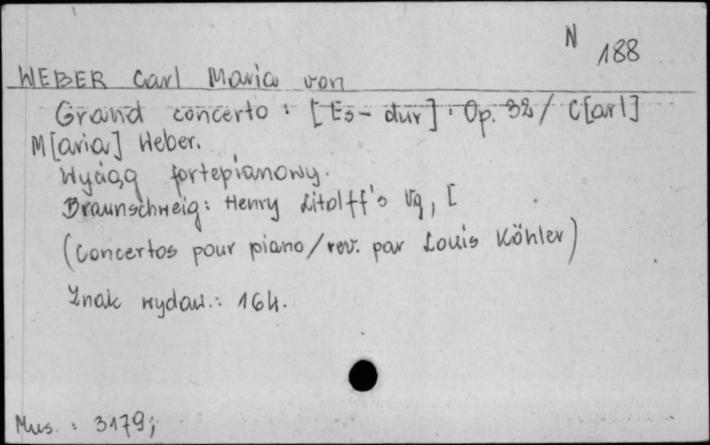 N 188
WEBER Carl Maria von
Grand concerto : [Es-dur] : Op. 32 / C[arl]
M[aria] Weber.
Wyciąg fortepianowy.
Braunschweig : Henry Litolff's Vg, [
(Concertos pour piano / rev. par Louis Köhler)
Znak wydaw. : 164.
Mus. : 3179;